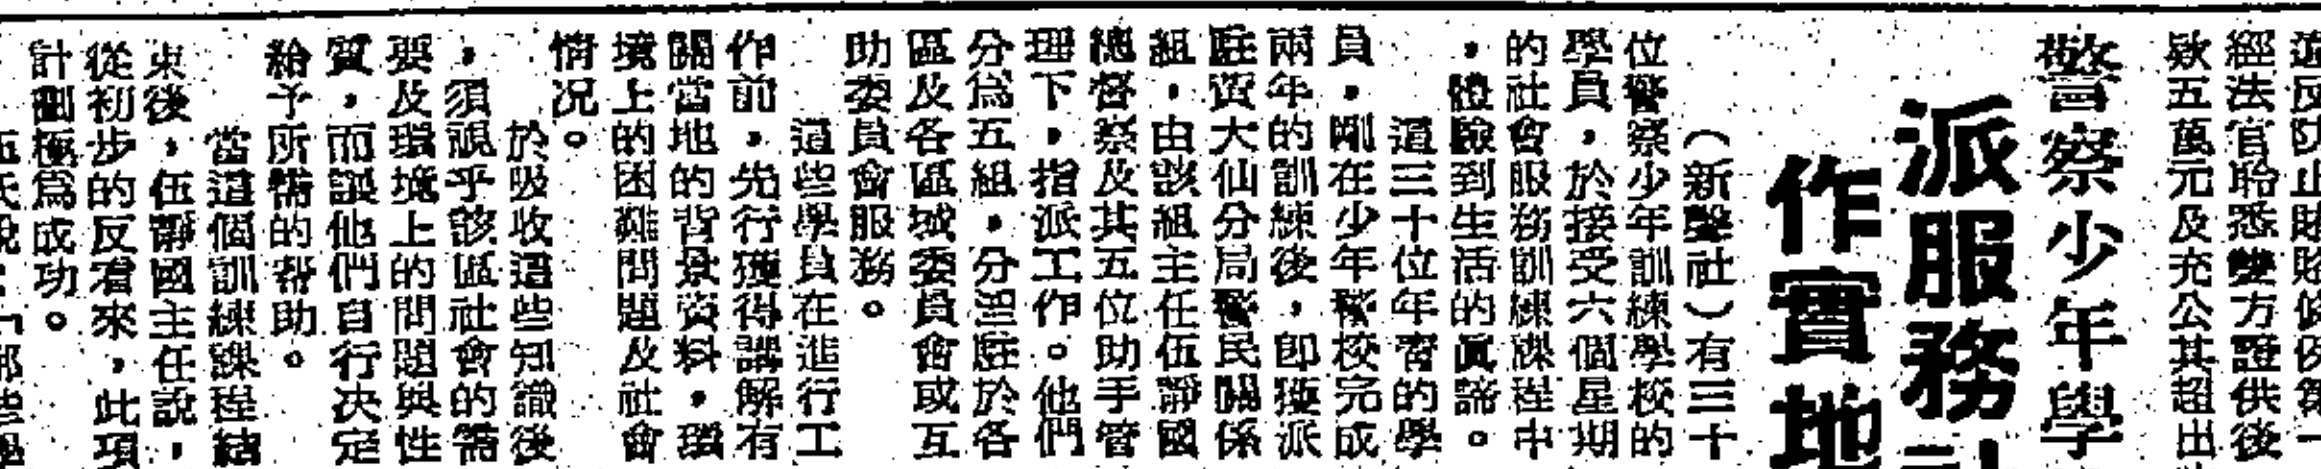 經法官聆悉雙方證供後
欵五萬元及充公其超出
警察少年學
派服務
作實地
（新聲社）有三十
位警察少年訓練學校的
學員，於接受六個星期
的社會服務訓練課程中
，體驗到生活的眞諦。
這三十位年青的學
員，剛在少年警校完成
兩年的訓練後，卽獲派
駐黃大仙分局警民關係
組，由該組主任伍靜國
總督察及其五位助手管
理下，指派工作。他們
分爲五組，分别駐於各
區及各區域委員會或互
助委員會服務。
這些學員在進行工
作前，先行獲得講解有
關當地的背景資料，環
境上的困難問題及社會
情况。
於吸收這些知識後
，須視乎該區社會的需
要及環境上的問題與性
質，而該他們自行决定
給予所需的帮助。
當這個訓練課程結
束後，伍靜國主任說，
從初步的反看來，此項
計劃極爲成功。
伍氏說：「那些學